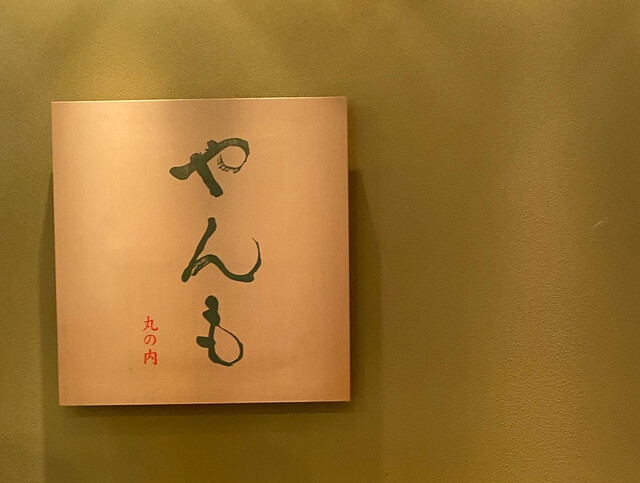 やんも
丸の内